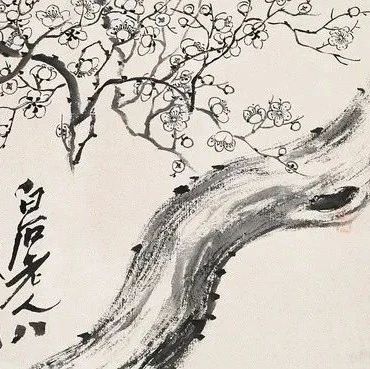 白石老人八